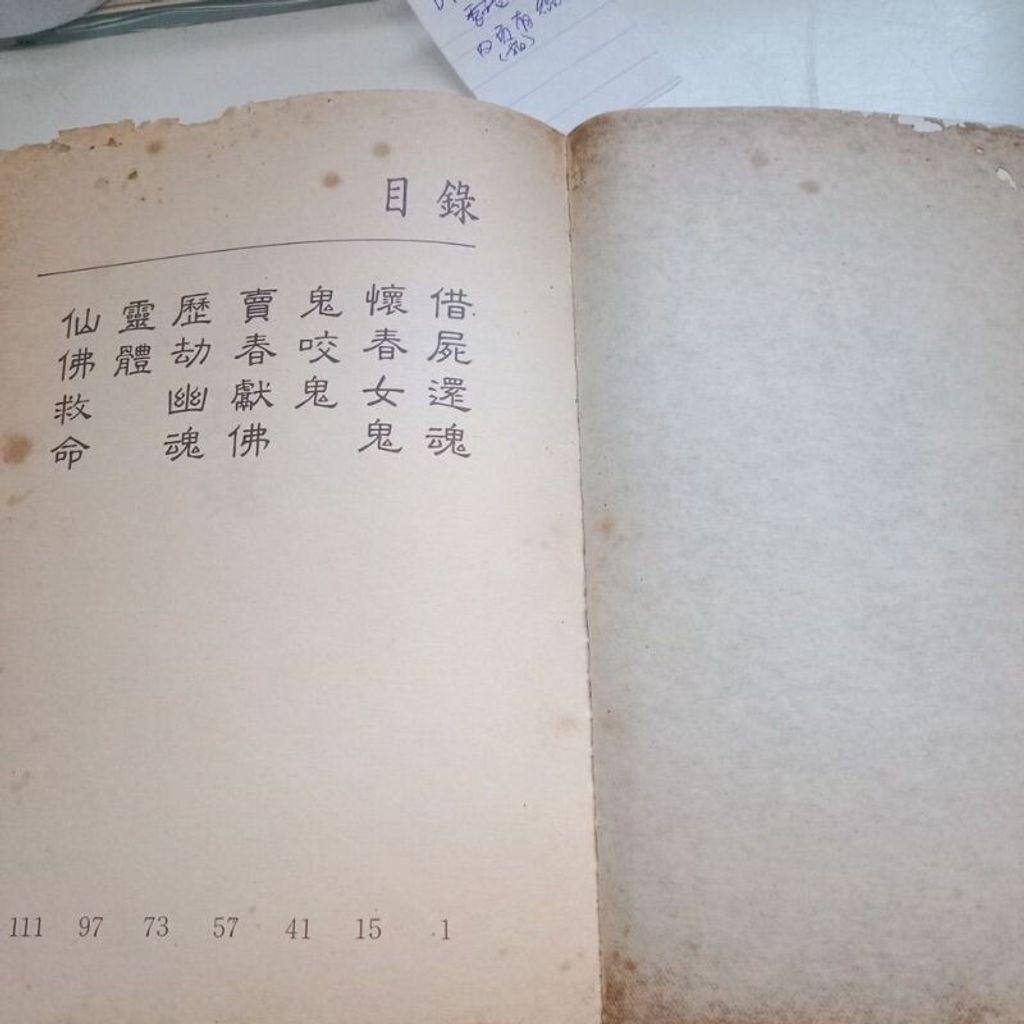 目錄
借屍還魂
懷春女鬼
鬼咬鬼
賣春獻佛
歷劫幽魂
靈體
仙佛救命
111 97 73 57 41 15 1